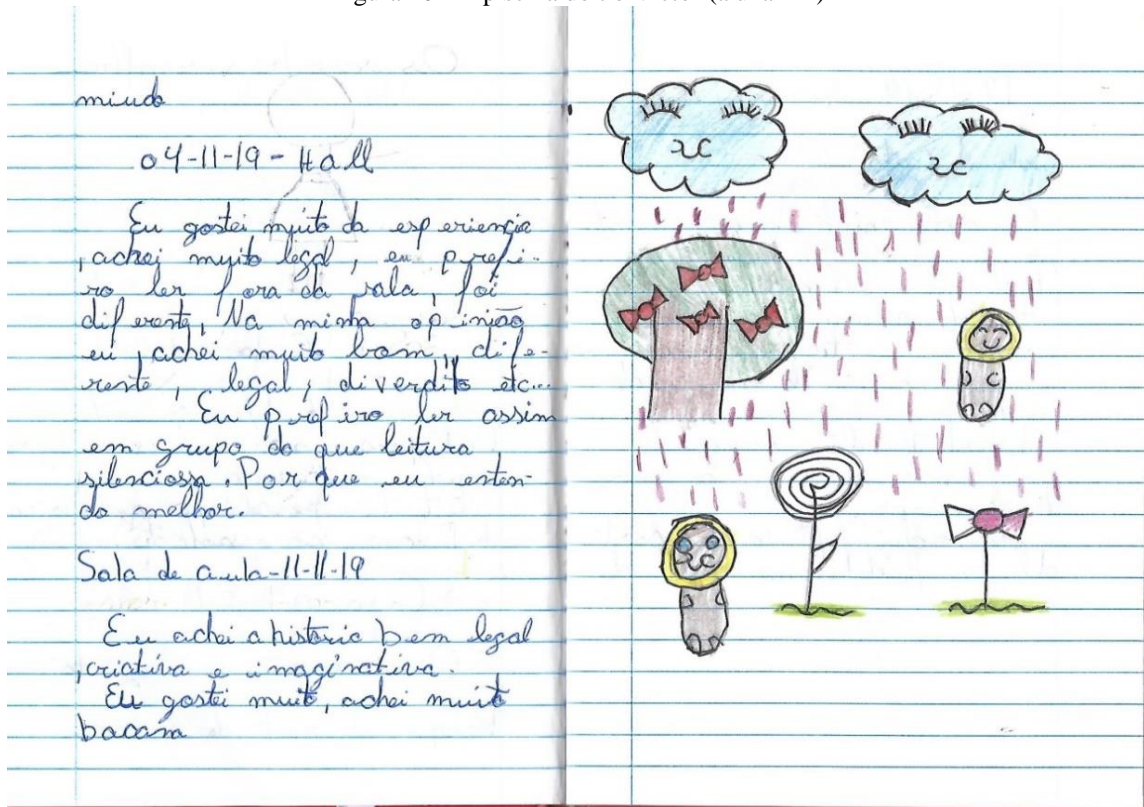 miudo
04-11-19 - Hall
Eu gostei muito da esperiencia
, achei muyto legal, eu prefi-
ro ler fora da sala, foi
diferente, Na minha opinião
eu, achei muito bom, dife-
rente, legal, diverdito etc...
Eu prefiro ler assim
em grupo do que leitura
silenciossa. Por que eu enten-
do melhor.
Sala de aula-11-11-19
Eu achei a historia bem legal
, criativa e imaginativa.
Eu gostei muito, achei muito
bacana